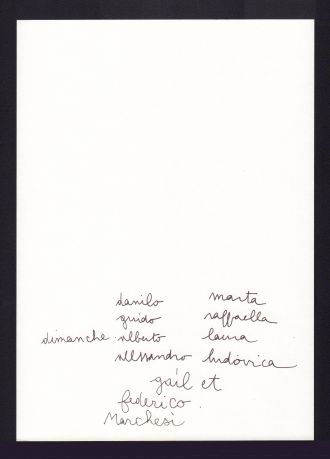 danilo marta
guido raffaella
dimanche . alberto laura
alessandro ludovica
gail et
federico .
Marchesi